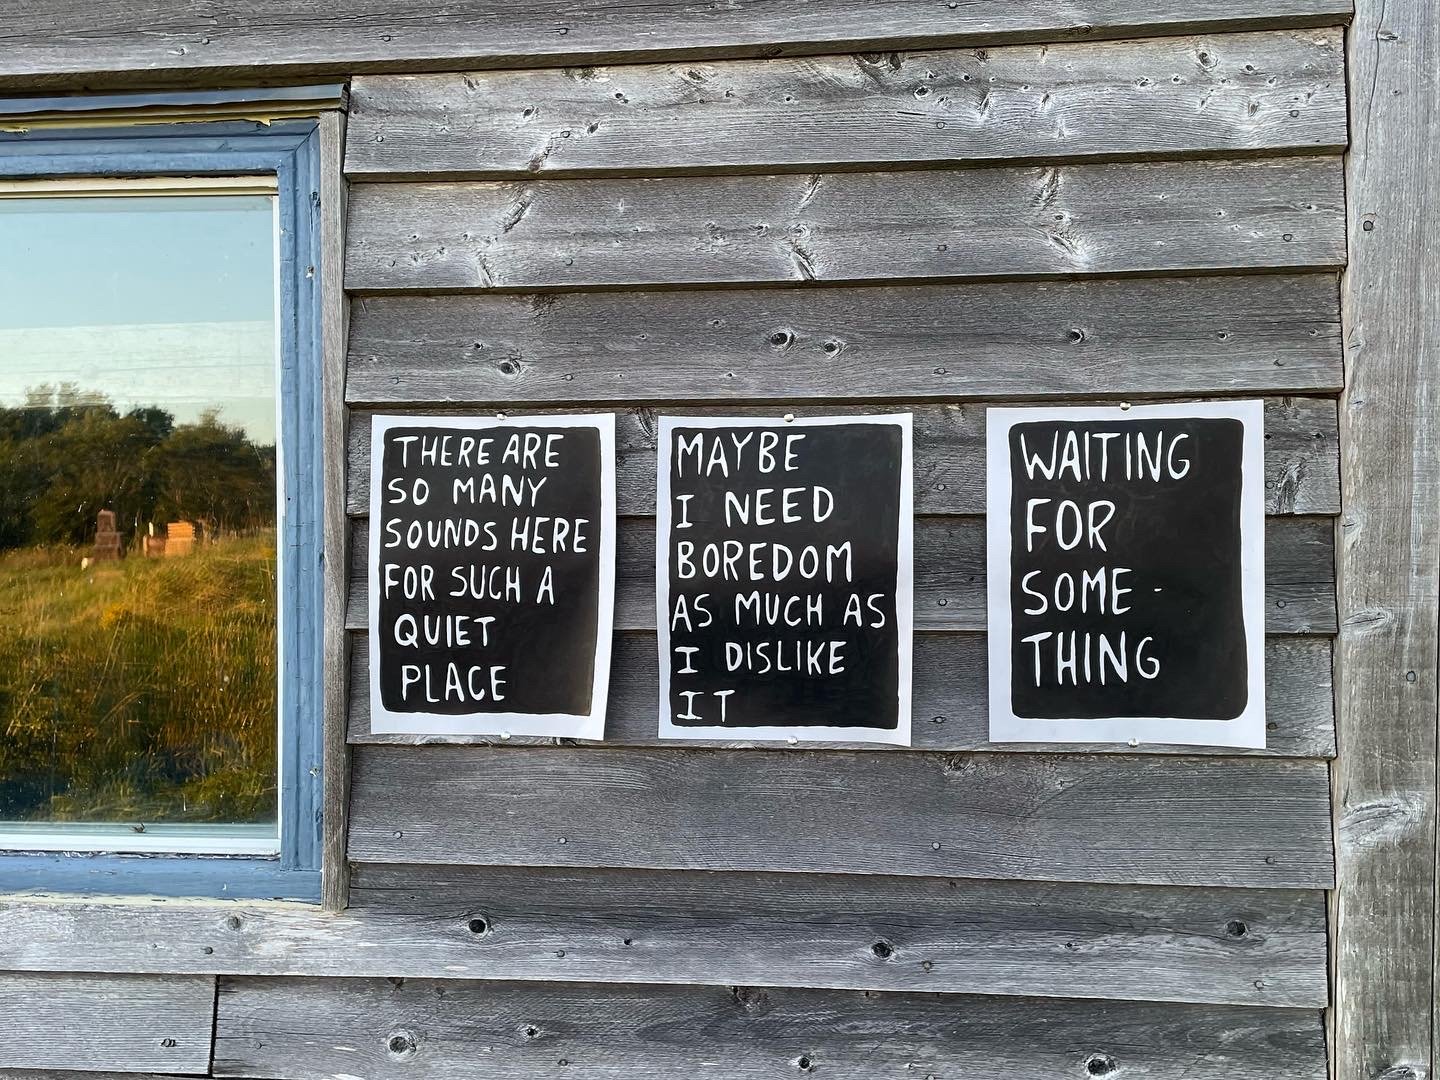 THERE ARE
SO MANY
SOUNDS HERE
FOR SUCH A
QUIET
PLACE
MAYBE
I NEED
BOREDOM
AS MUCH AS
I DISLIKE
IT
WAITING
FOR
SOME-
THING